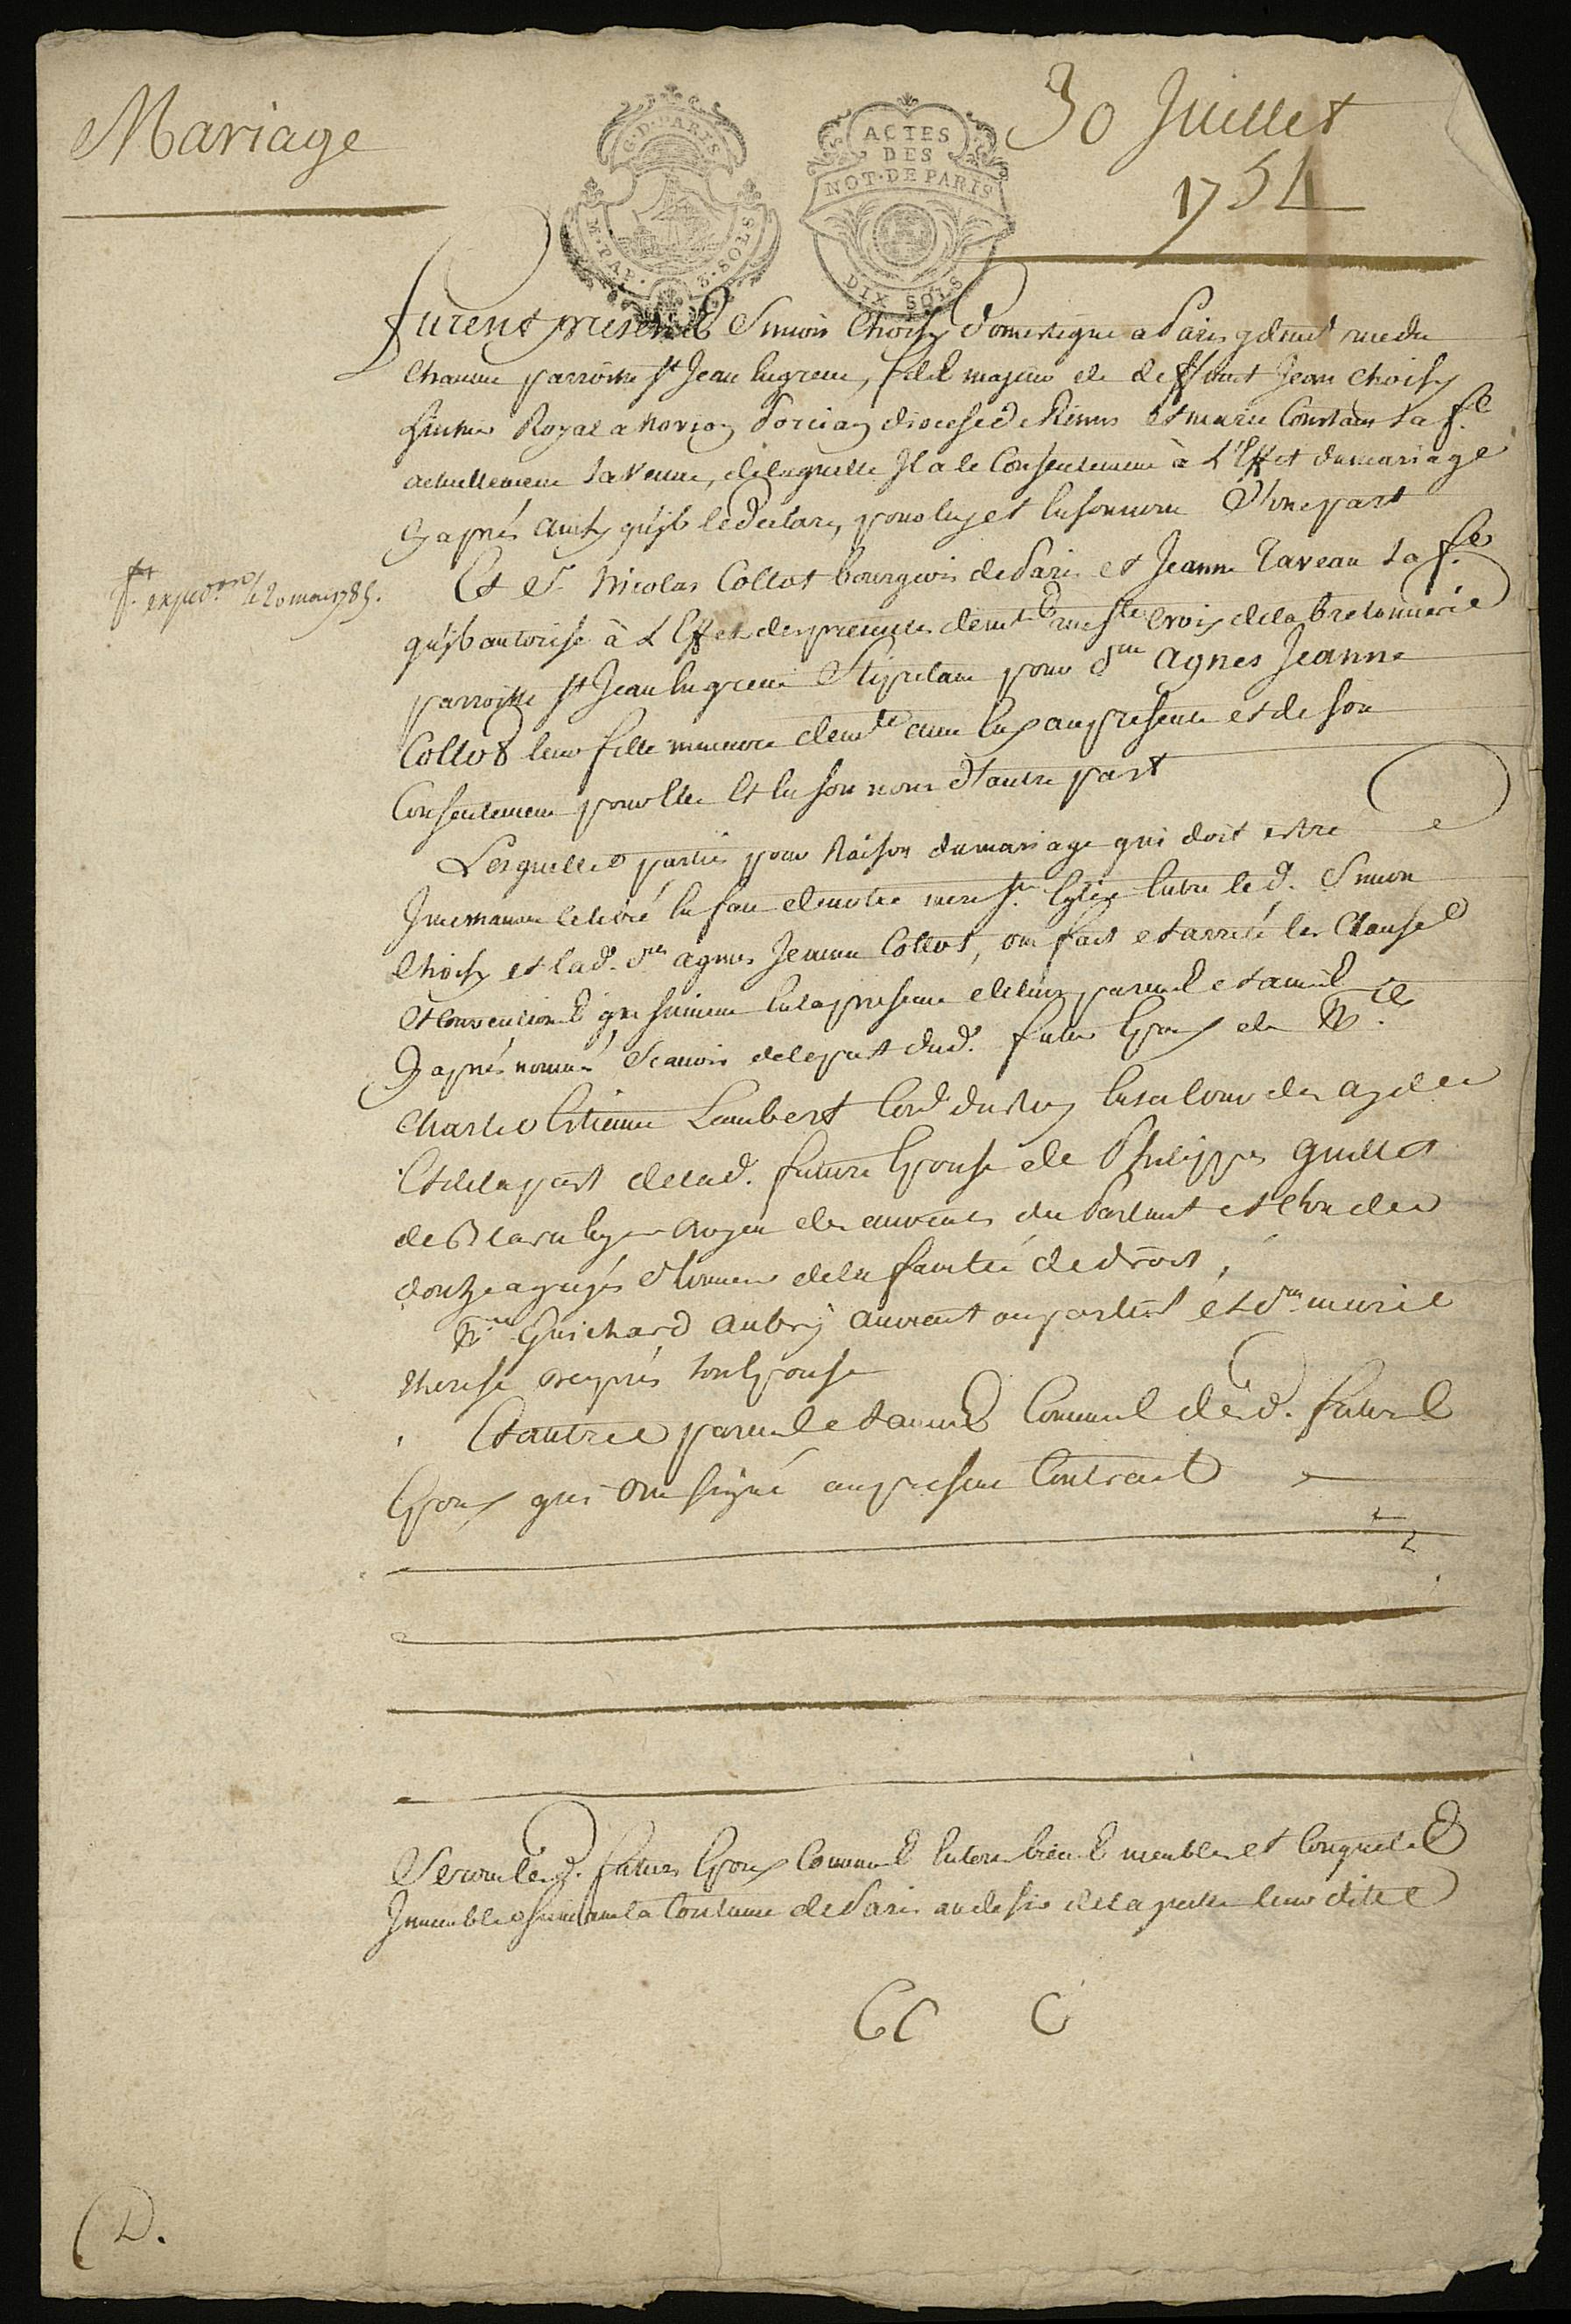 Mariage
30 Juillet
1754
G. D. PARIS
M. PAP. 3. SOLS
ACTES
DES
NOT. DE PARIS
DIX SOLS
furent presents Simon Choisy Domestique a Paris y demt rue du
Chaume parroisse St Jean en greve, fils majeur de deffunt Jean Choisy
huissier Royal a Novion Porcien diocese de Reims et marie Constant sa fe
actuellement sa veuve, de laquelle Il a le Consentement à L'Effet du mariage
cy après ainsy qu'il le declare, pour luy et en son nom D'une part
expedon le 20 mai 1785.
Et Sr Nicolas Collot bourgeois de Paris et Jeanne Taveau sa fe
qu'il autorise à L'Effet des presentes demts rue Ste Croix de la bretonnerie
parroisse St Jean en greve Stipulans pour Dlle agnes Jeanne
Collot leur fille mineure demte avec eux a ce presente et de son
Consentement pour elle et en son nom d'autre part
Lesquelles parties pour Raison du mariage qui doit estre
Incessament celebré en face de notre mere Ste Eglise Entre led. Simon
Choisy et lad. Dlle agnes Jeanne Collot, ont fait et arreté les Clauses
et Conventions qui suivent en la presence de leurs parens et amis
cy après nommés Scavoir de la part dud. futur Epoux de Me
Charles Etienne Lambert Coner du Roy en sa Cour des aydes
Et de la part de lad. future Epouse de Philippes Guillet
de Blaru Ecuyer doyen des avocats du Parlement et l'un des
douze agregés d'honneur de la faculté de droit,
Me Guichard aubry avocat au parlemt et Dme marie
therese son Epouse
Et autres parens et amis Communs desd. futurs
Epoux qui ont signé au present Contract
Seront lesd. futurs Epoux Communs en tous biens meubles et Conquets
Immeubles suivant la Coutume de Paris au desir de laquelle leurdite
CC C
D.